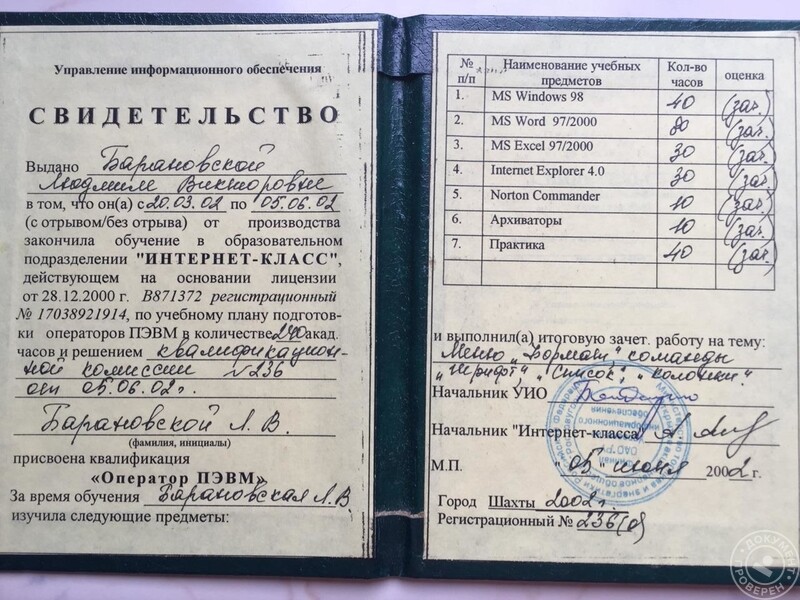 Управление информационного обеспечения
СВИДЕТЕЛЬСТВО
Выдано Барановской
Людмиле Викторовне
в том, что он(а) с 20.03.02 по 05.06.02
(с отрывом/без отрыва) от производства
закончила обучение в образовательном
подразделении "ИНТЕРНЕТ-КЛАСС",
действующем на основании лицензии
от 28.12.2000 г. В871372 регистрационный
№ 17038921914, по учебному плану подготов-
ки операторов ПЭВМ в количестве 240 акад.
часов и решением квалификацион-
ной комиссии №236
от 05.06.02г.
Барановской Л. В.
(фамилия, инициалы)
присвоена квалификация
«Оператор ПЭВМ»
За время обучения Барановская Л.В.
изучила следующие предметы:
№ п/п Наименование учебных предметов Кол-во часов оценка
1. MS Windows 98 40 (зач.)
2. MS Word 97/2000 80 (зач.)
3. MS Excel 97/2000 30 (зач.)
4. Internet Explorer 4.0 30 (зач.)
5. Norton Commander 10 (зач.)
6. Архиваторы 10 (зач.)
7. Практика 40 (зач.)
и выполнил(а) итоговую зачет. работу на тему:
Меню „Формат" команды
„Шрифт", „Список", „Колонки".
Начальник УИО
Начальник "Интернет-класса
М.П. "05" июня 2002г.
Город Шахты 2002г.
Регистрационный № 236(д)
ДОКУМЕНТ ПРОВЕРЕН